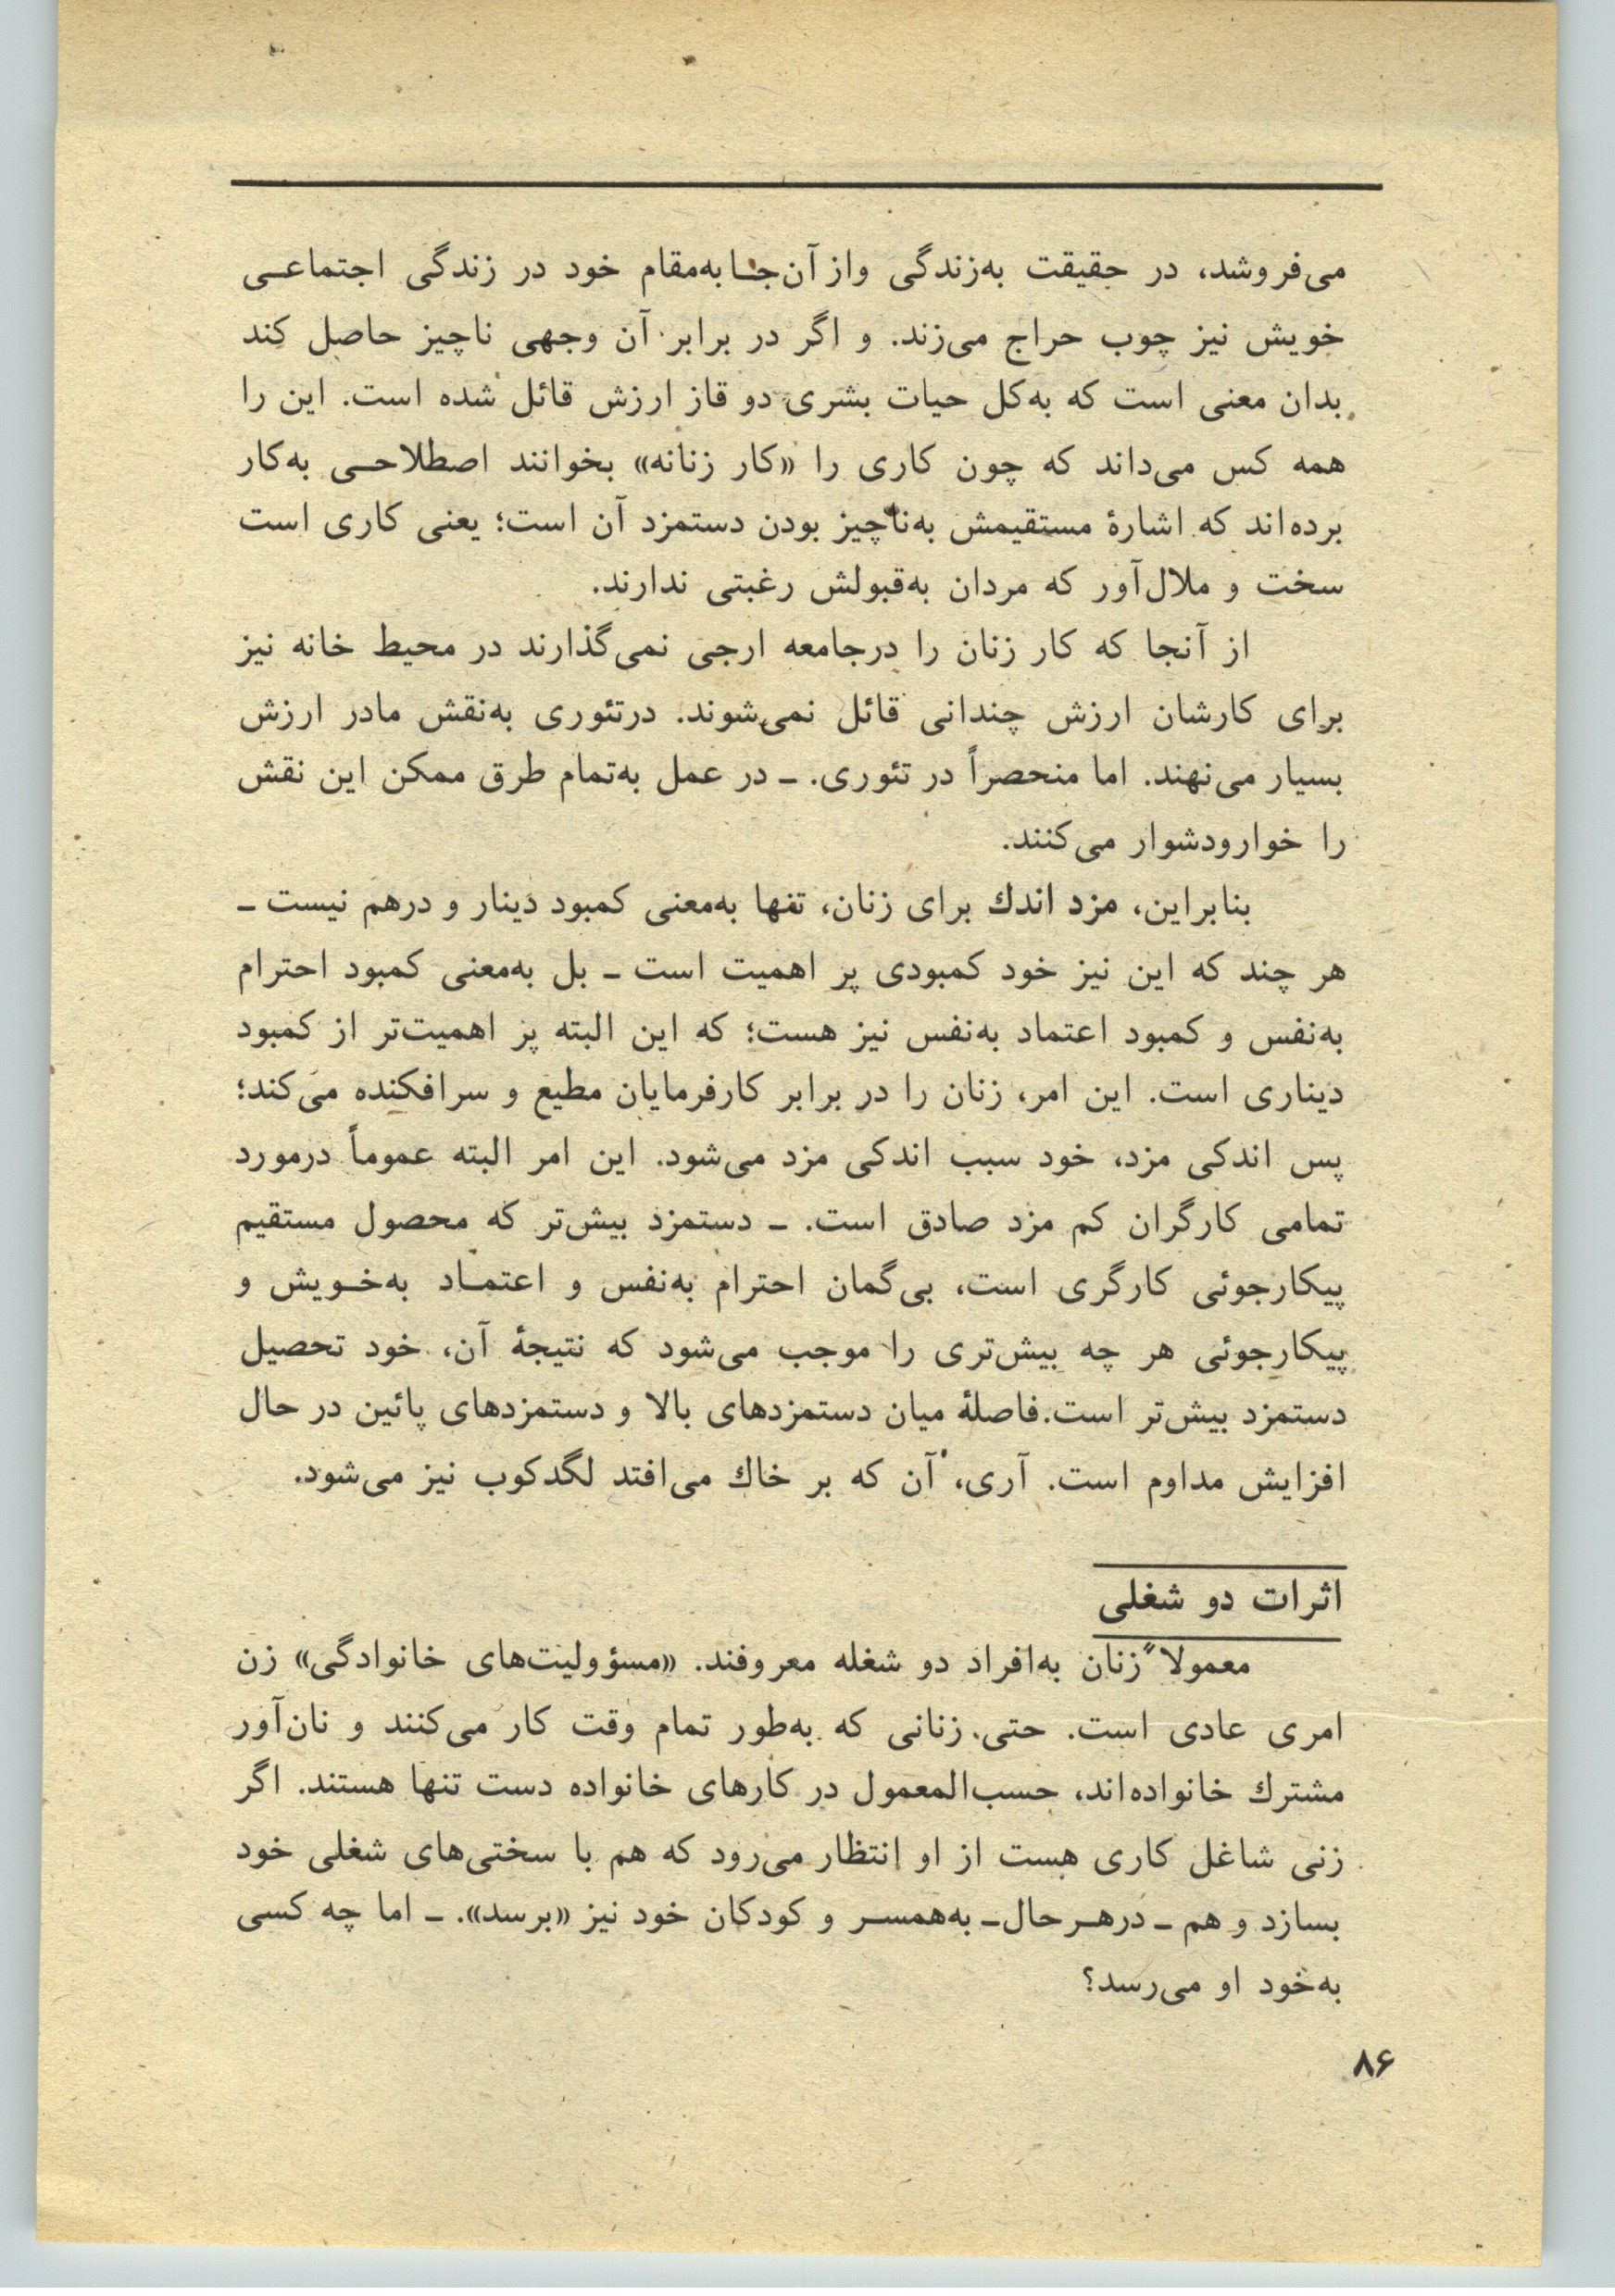 می‌فروشد، در حقیقت به‌زندگی واز آن‌جا به‌مقام خود در زندگی اجتماعی
خویش نیز چوب حراج می‌زند. و اگر در برابر آن وجهی ناچیز حاصل کند
بدان معنی است که به‌کل حیات بشری دو قاز ارزش قائل شده است. این را
همه کس می‌داند که چون کاری را «کار زنانه» بخوانند اصطلاحی به‌کار
برده‌اند که اشارهٔ مستقیمش به‌ناچیز بودن دستمزد آن است؛ یعنی کاری است
سخت و ملال‌آور که مردان به‌قبولش رغبتی ندارند.
از آنجا که کار زنان را درجامعه ارجی نمی‌گذارند در محیط خانه نیز
برای کارشان ارزش چندانی قائل نمی‌شوند. درتئوری به‌نقش مادر ارزش
بسیار می‌نهند. اما منحصراً در تئوری. ـ در عمل به‌تمام طرق ممکن این نقش
را خوارودشوار می‌کنند.
بنابراین، مزد اندك برای زنان، تنها به‌معنی کمبود دینار و درهم نیست ـ
هر چند که این نیز خود کمبودی پر اهمیت است ـ بل به‌معنی کمبود احترام
به‌نفس و کمبود اعتماد به‌نفس نیز هست؛ که این البته پر اهمیت‌تر از کمبود
دیناری است. این امر، زنان را در برابر کارفرمایان مطیع و سرافکنده می‌کند؛
پس اندکی مزد، خود سبب اندکی مزد می‌شود. این امر البته عموماً درمورد
تمامی کارگران کم مزد صادق است. ـ دستمزد بیش‌تر که محصول مستقیم
پیکارجوئی کارگری است، بی‌گمان احترام به‌نفس و اعتماد به‌خویش و
پیکارجوئی هر چه بیش‌تری را موجب می‌شود که نتیجهٔ آن، خود تحصیل
دستمزد بیش‌تر است. فاصلهٔ میان دستمزدهای بالا و دستمزدهای پائین در حال
افزایش مداوم است. آری، آن که بر خاك می‌افتد لگدکوب نیز می‌شود.
اثرات دو شغلی
معمولاً زنان به‌افراد دو شغله معروفند. «مسؤولیت‌های خانوادگی» زن
امری عادی است. حتی زنانی که به‌طور تمام وقت کار می‌کنند و نان‌آور
مشترك خانواده‌اند، حسب‌المعمول در کارهای خانواده دست تنها هستند. اگر
زنی شاغل کاری هست از او انتظار می‌رود که هم با سختی‌های شغلی خود
بسازد و هم ـ درهرحال ـ به‌همسر و کودکان خود نیز «برسد». ـ اما چه کسی
به‌خود او می‌رسد؟
۸۶